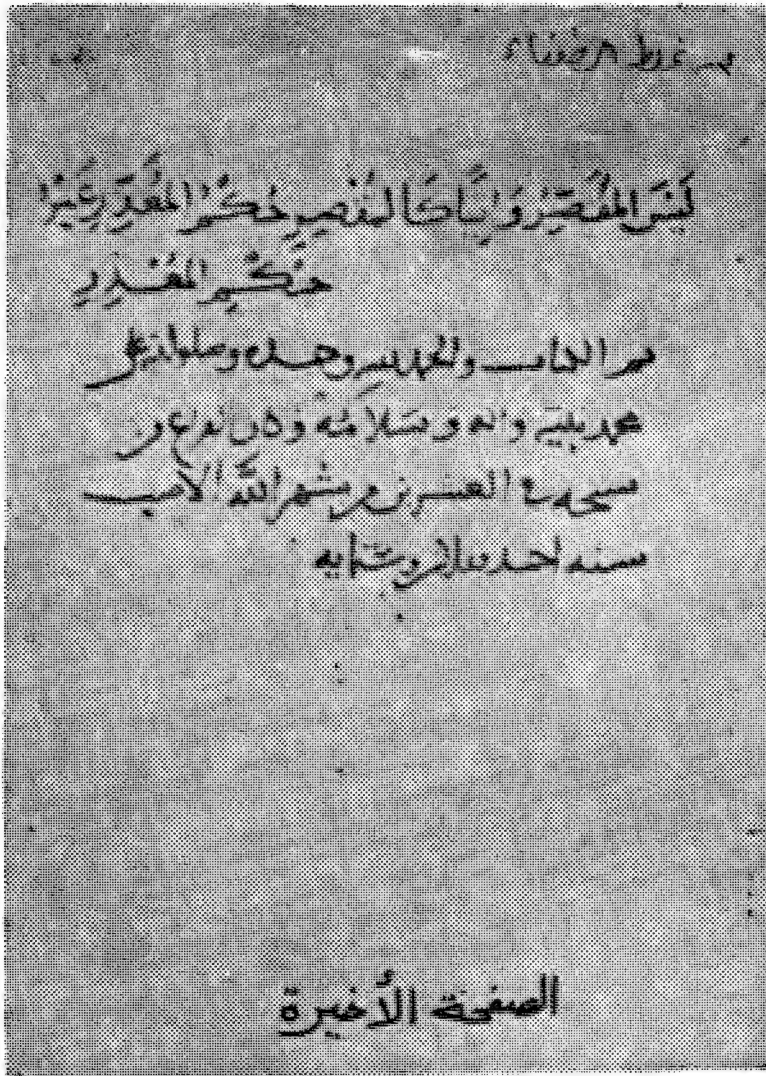 ليس المقصر وانيا كالمقصر حكم المعذر غير
حكم المعذر
تم الكتاب والحمد لله وحده وصلواته على
محمد نبيه واله وسلامه وكان الفراغ من
نسخه في العشرين من شهر الله الاصب
سنه احد وستمايه
الصفحة الأخيرة